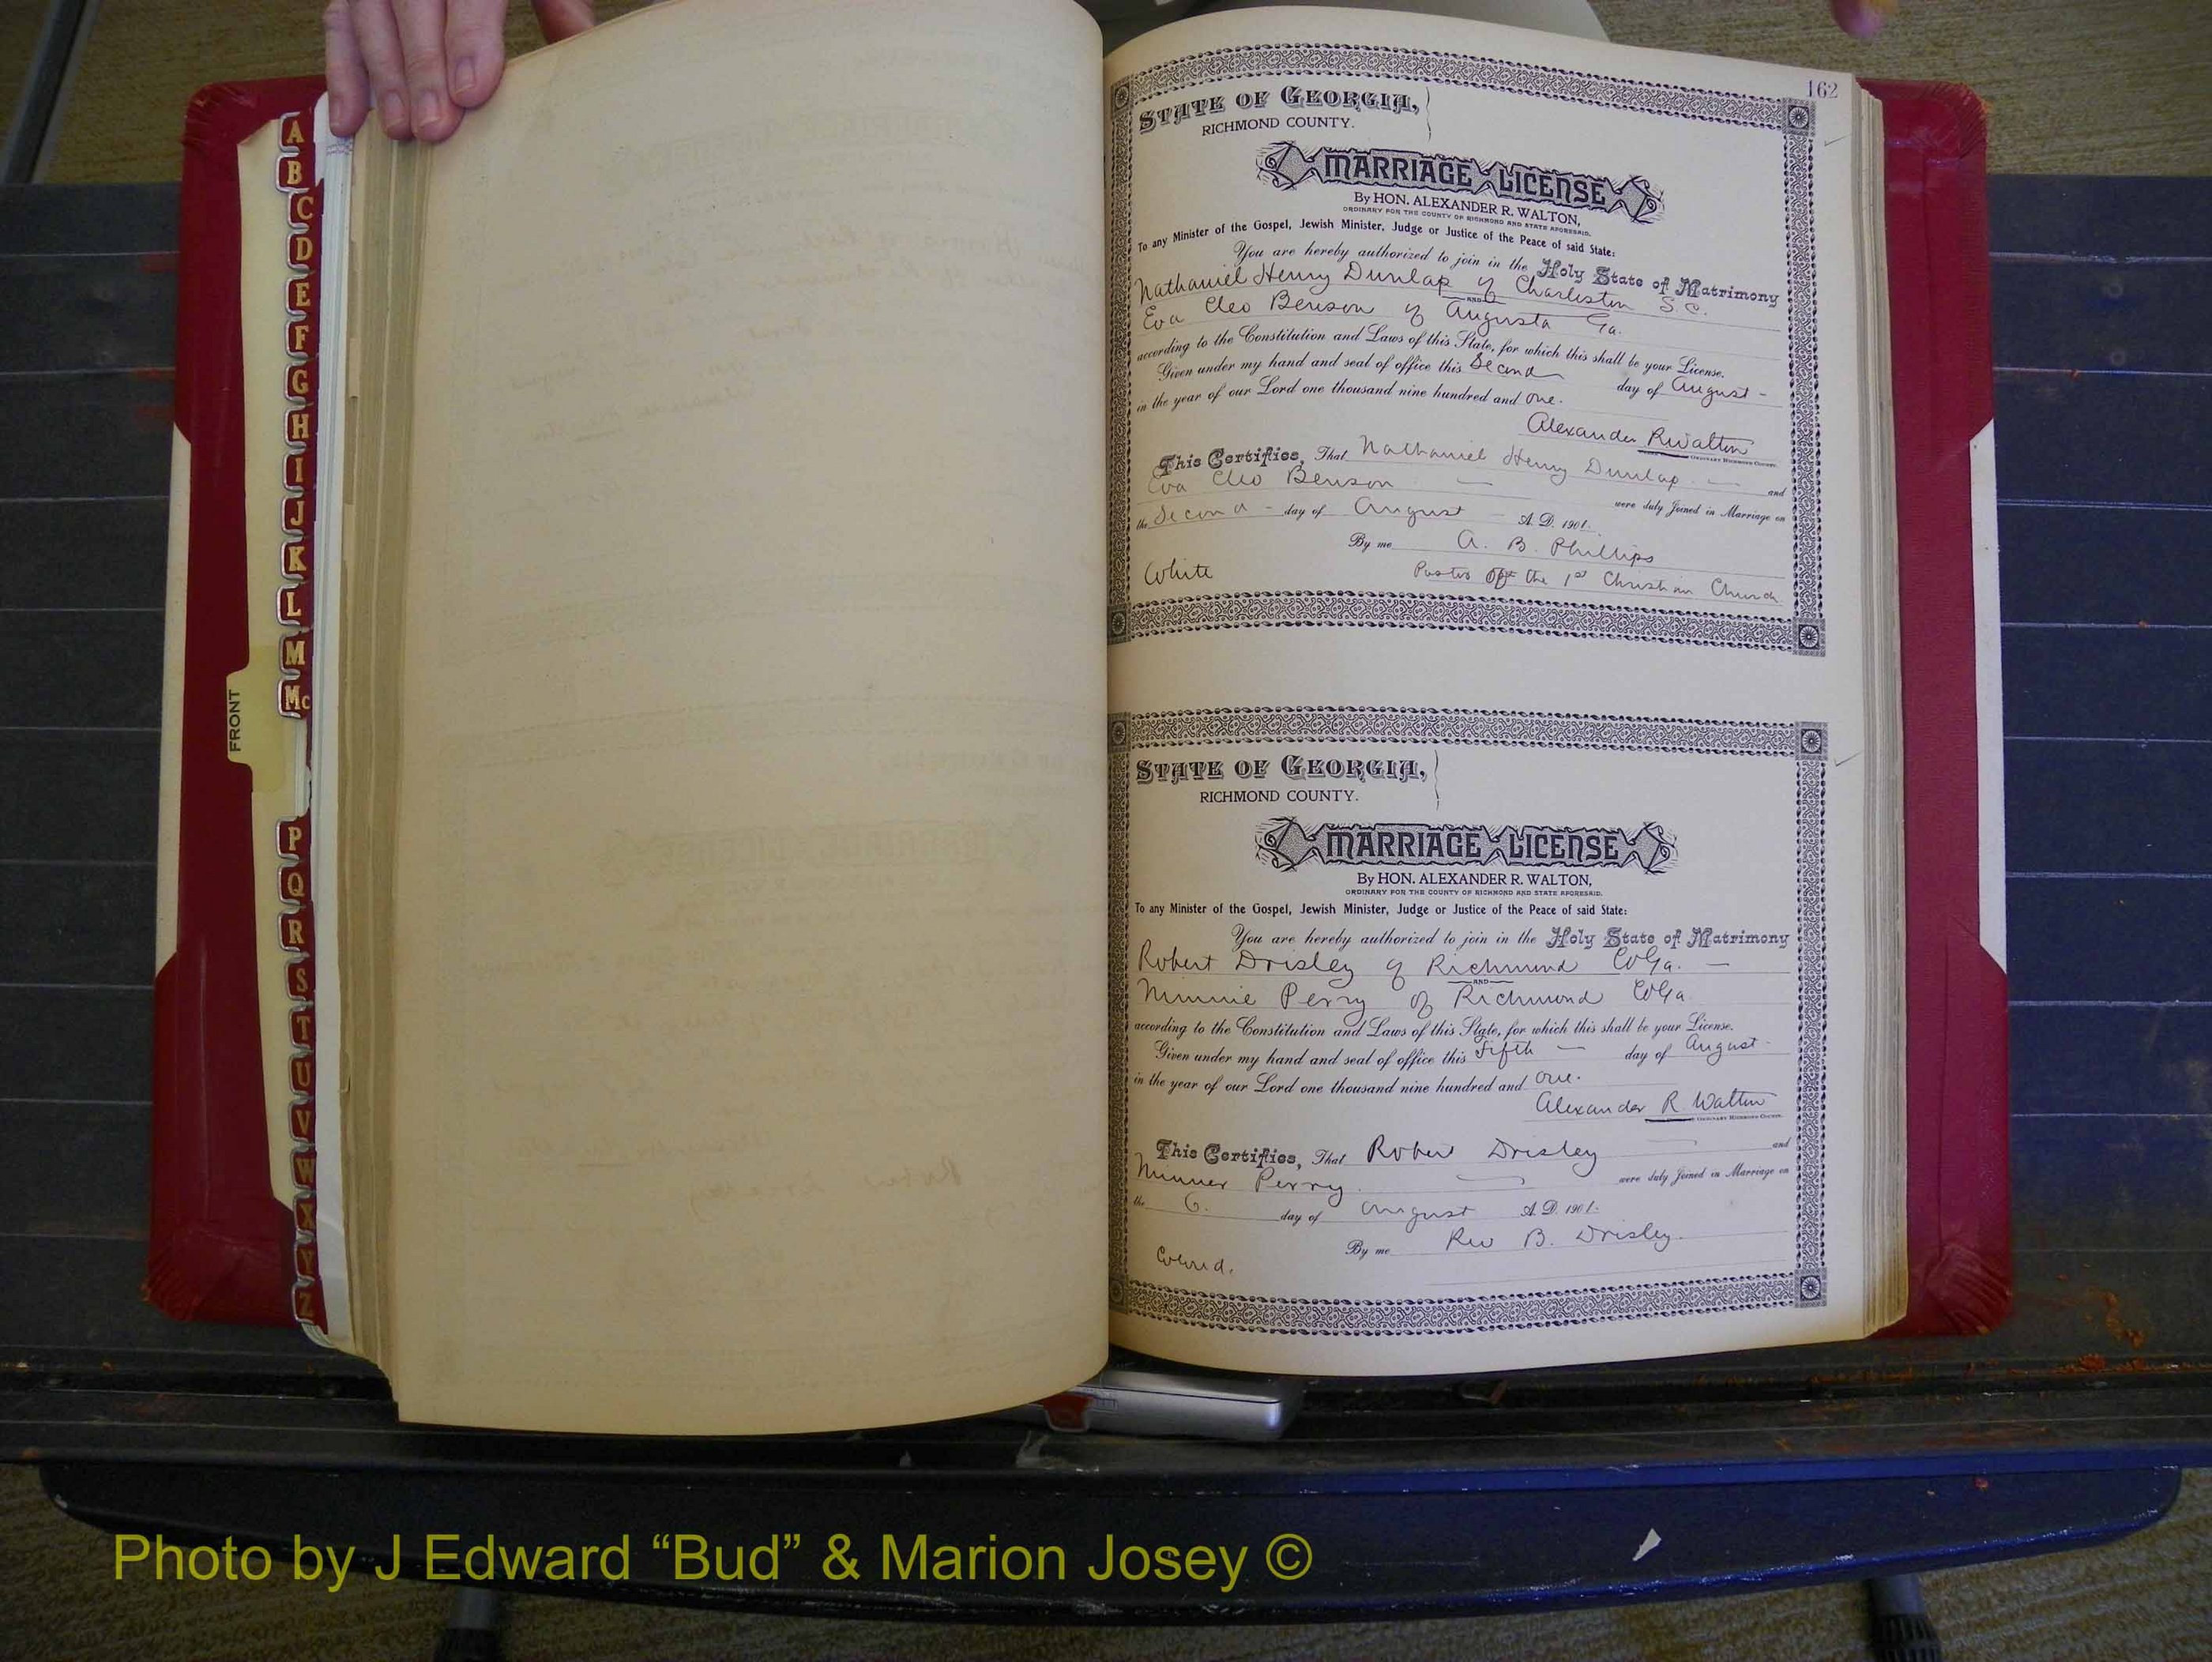 A
B
C
D
E
F
G
H
I
J
K
L
M
Mc
P
Q
R
S
T
U
V
W
X
Y
Z
FRONT
162
STATE OF GEORGIA,
RICHMOND COUNTY.
MARRIAGE LICENSE
By HON. ALEXANDER R. WALTON,
ORDINARY FOR THE COUNTY OF RICHMOND AND STATE AFORESAID.
To any Minister of the Gospel, Jewish Minister, Judge or Justice of the Peace of said State:
You are hereby authorized to join in the Holy State of Matrimony
Nathaniel Henry Dunlap of Charleston S.C.
AND
Eva Cleo Benson of Augusta Ga.
according to the Constitution and Laws of this State, for which this shall be your License.
Given under my hand and seal of office this Second day of August -
in the year of our Lord one thousand nine hundred and one.
Alexander R Walton
ORDINARY RICHMOND COUNTY.
This Certifies, That Nathaniel Henry Dunlap - and
Eva Cleo Benson - were duly Joined in Marriage on
the Second - day of August - A. D. 1901.
By me A. B. Phillips
White Pastor of the 1st Christian Church
STATE OF GEORGIA,
RICHMOND COUNTY.
MARRIAGE LICENSE
By HON. ALEXANDER R. WALTON,
ORDINARY FOR THE COUNTY OF RICHMOND AND STATE AFORESAID.
To any Minister of the Gospel, Jewish Minister, Judge or Justice of the Peace of said State:
You are hereby authorized to join in the Holy State of Matrimony
Robert Drisley of Richmond Co Ga. -
AND
Minnie Perry of Richmond Co Ga
according to the Constitution and Laws of this State, for which this shall be your License.
Given under my hand and seal of office this Fifth - day of August -
in the year of our Lord one thousand nine hundred and one.
Alexander R Walton
ORDINARY RICHMOND COUNTY.
This Certifies, That Robert Drisley - and
Minner Perry. - were duly Joined in Marriage on
the 6. day of August A. D. 1901.
By me Rev B. Drisley.
Colored.
Photo by J Edward “Bud” & Marion Josey ©